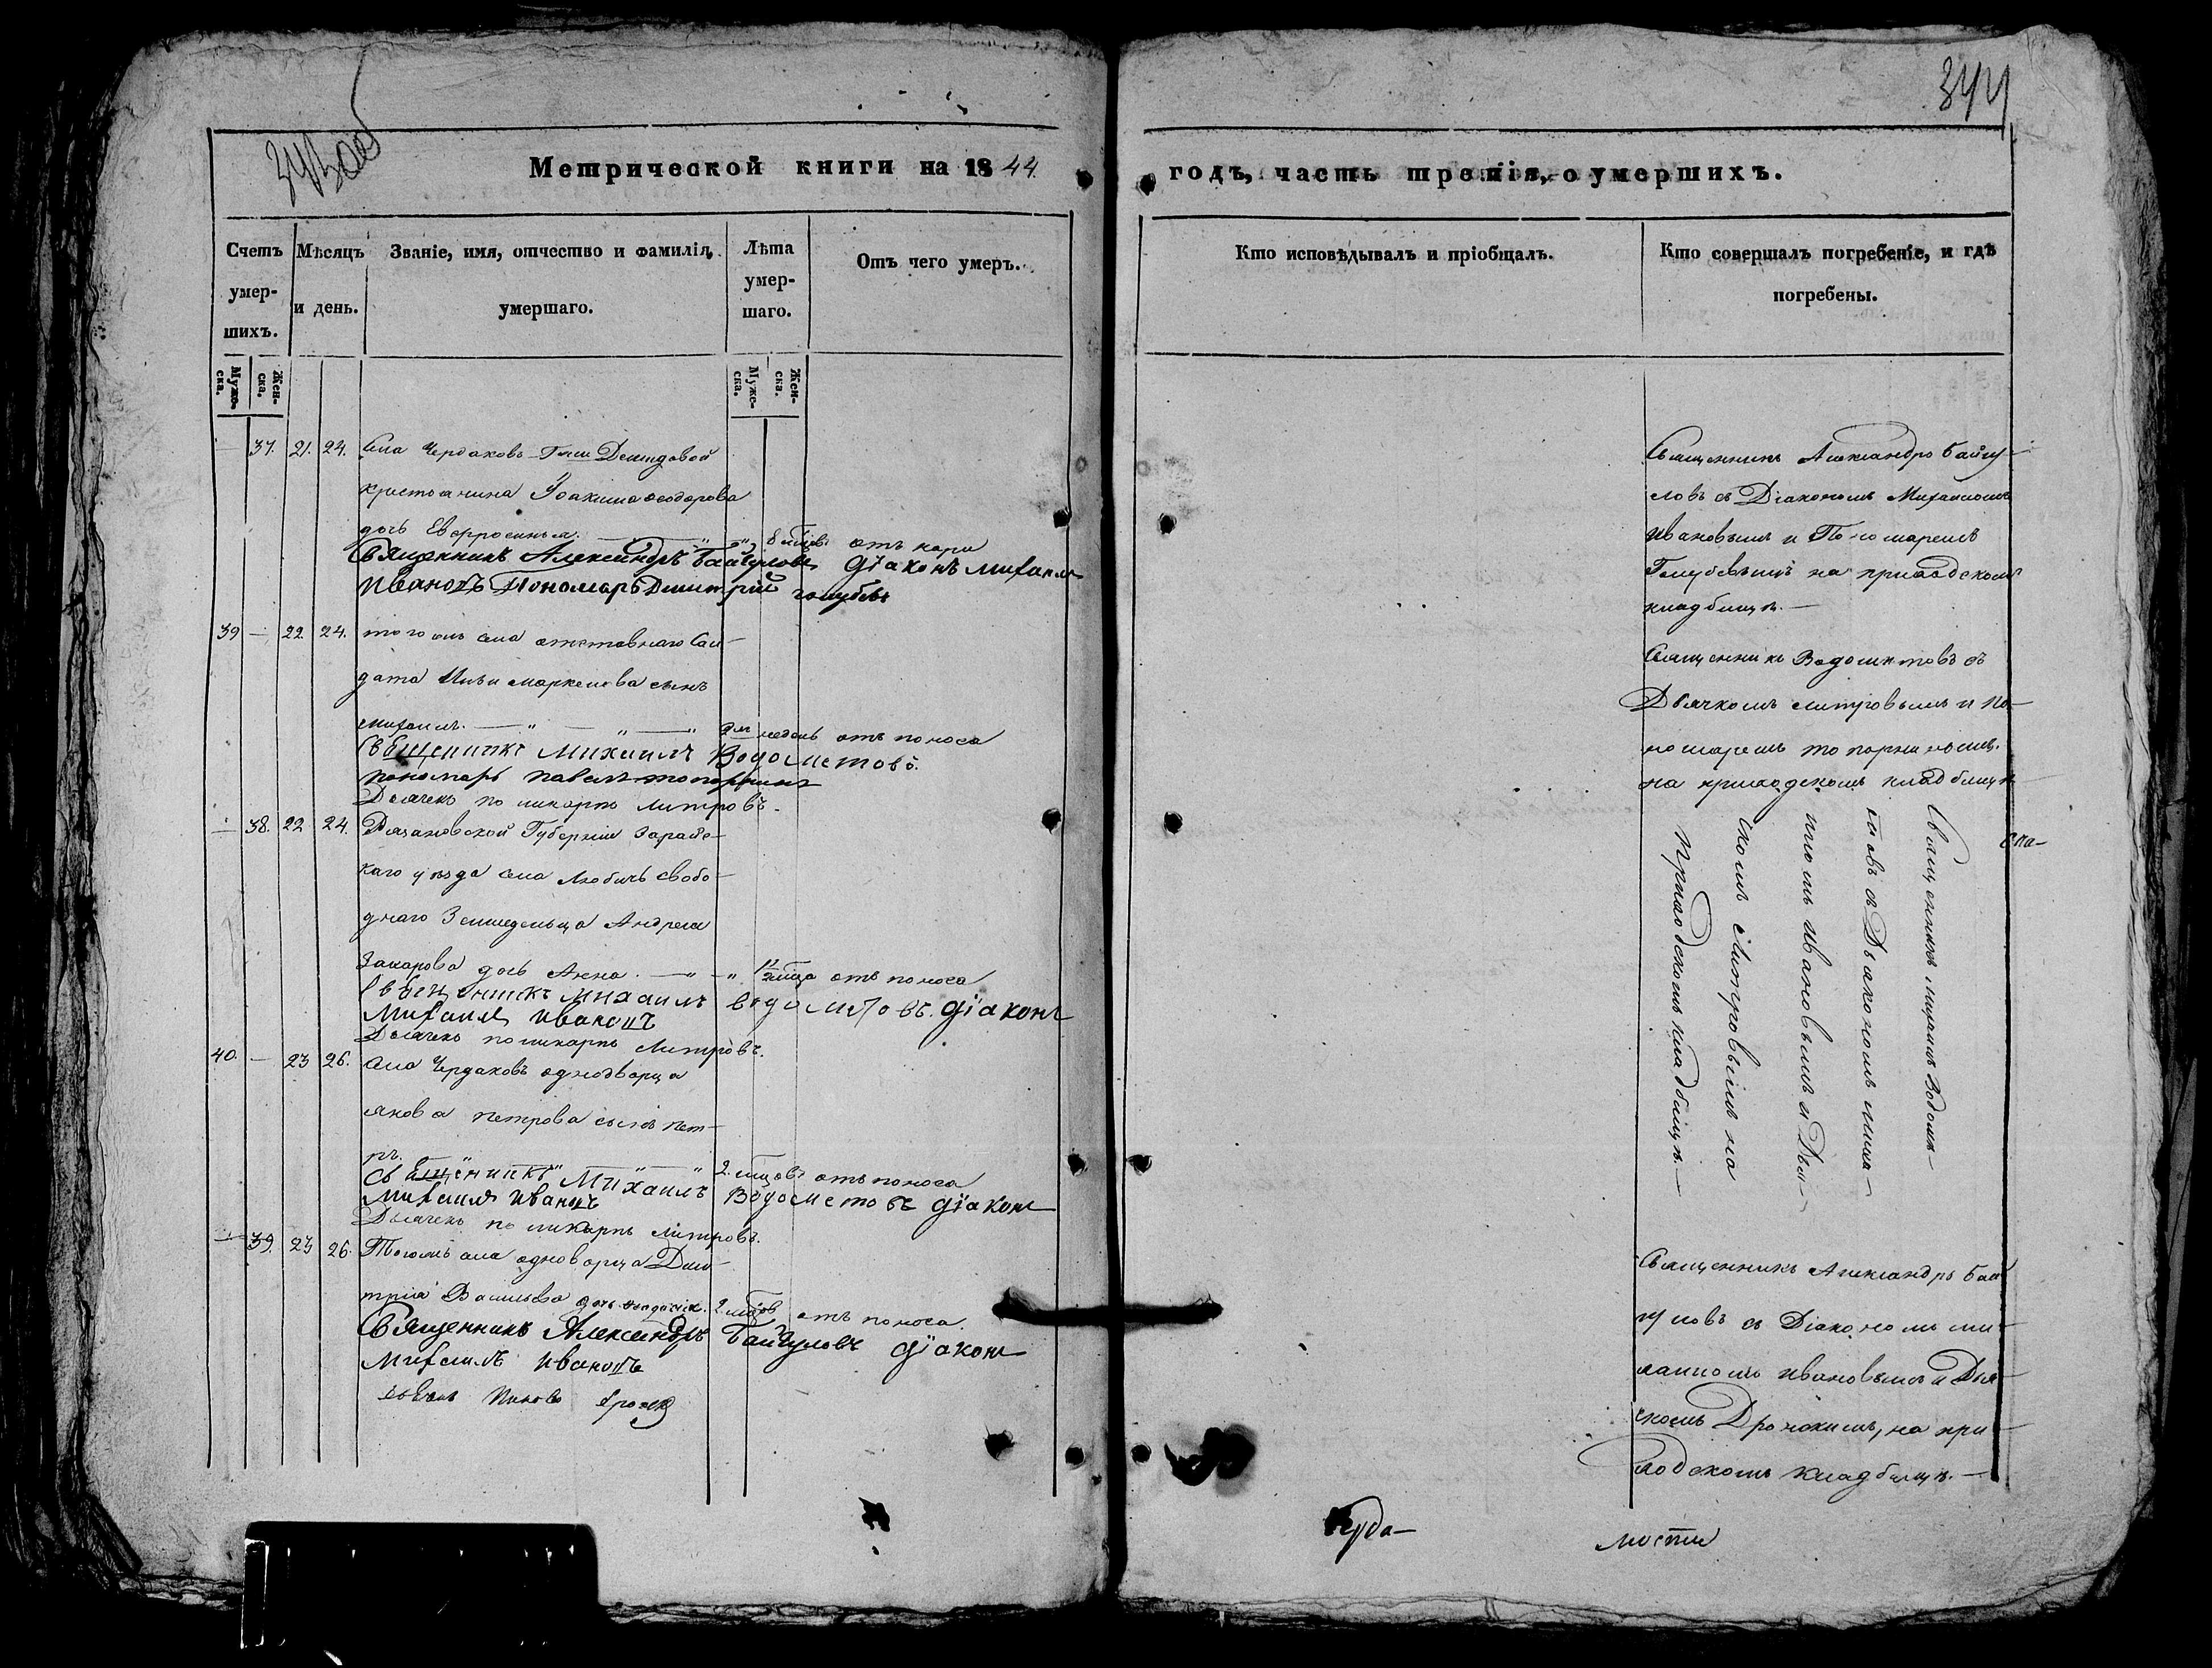 343 об
344
Метрической книги на 1844.
годъ, часть третія, о умершихъ.
Счетъ умер-
шихъ.
Мѣсяцъ
и день.
Званіе, имя, отчество и фамилія
умершаго.
Лѣта
умер-
шаго.
Отъ чего умеръ.
Кто исповѣдывалъ и пріобщалъ.
Кто совершалъ погребеніе, и гдѣ
погребены.
Муже-
ска.
Жен-
ска.
Муже-
ска.
Жен-
ска.
— 37. 21. 24. Села Чердаковъ Демидовой
крестьянина Іоакима Феодорова
дочь Евфросинья. 8 мцовъ отъ кори
Священникъ Александръ Байгуловъ Діаконъ Михаилъ
Ивановъ Пономарь Димитрій Голубевъ
Священникъ Александръ Байгу-
ловъ съ Діакономъ Михаиломъ
Ивановымъ и Пономаремъ
Голубевымъ на приходскомъ
кладбищѣ. —
39 — 22 24. того же села отставнаго Сол-
дата Ильи Маркелова сынъ
Михаилъ. недель отъ поноса
Священникъ Михаилъ Водометовъ.
Пономарь Павелъ Топорнинъ
Дьячекъ Поликарпъ
Священникъ Водометовъ съ
Дьячкомъ и По-
номаремъ Топорнинымъ.
на приходскомъ кладбищѣ
— 38. 22 24. Рязановской Губерніи Зарай-
каго уѣзда села Любичь свобо-
днаго Земледельца Андрея
Захарова дочь Анна. мсца отъ поноса
Священникъ Михаилъ Водометовъ. Діаконъ
Михаилъ Ивановъ
Дьячекъ Поликарпъ
Священникъ Михаилъ Водоме-
товъ съ Діакономъ Миха-
иломъ Ивановымъ и Дья-
чкомъ на
Приходскомъ кладбищѣ. —
40. — 23 26. Села Чердаковъ однодворца
Якова Петрова сынъ Пет-
ръ. 2. мцовъ отъ поноса
Священникъ Михаилъ Водометовъ Діаконъ
Михаилъ Ивановъ
Дьячекъ Поликарпъ
— 39. 23 26. Тогожъ села однодворца Дми-
трія Васильева дочь 2. мцовъ отъ поноса.
Священникъ Александръ Байгуловъ Діаконъ
Михаилъ Ивановъ
Священникъ Александръ Бай
гуловъ съ Діакономъ Ми-
хаиломъ Ивановымъ и Дья-
чкомъ на при-
ходскомъ кладбищѣ. —